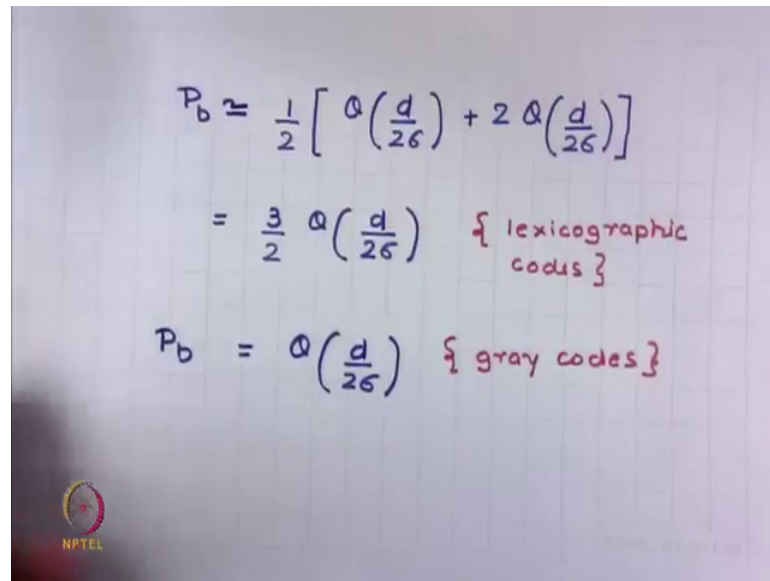 P_b ≃ 1/2 [ Q(d/2σ) + 2 Q(d/2σ) ]
= 3/2 Q(d/2σ) { lexicographic
codes }
P_b = Q(d/2σ) { gray codes }
NPTEL